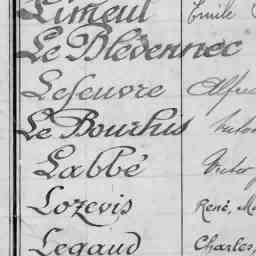 Limeul Emile
Le Blévennec
Lefeuvre Alfred
Le Bourhis Victor
Labbé Victor
Lozevis René, Ma
Legaud Charles,